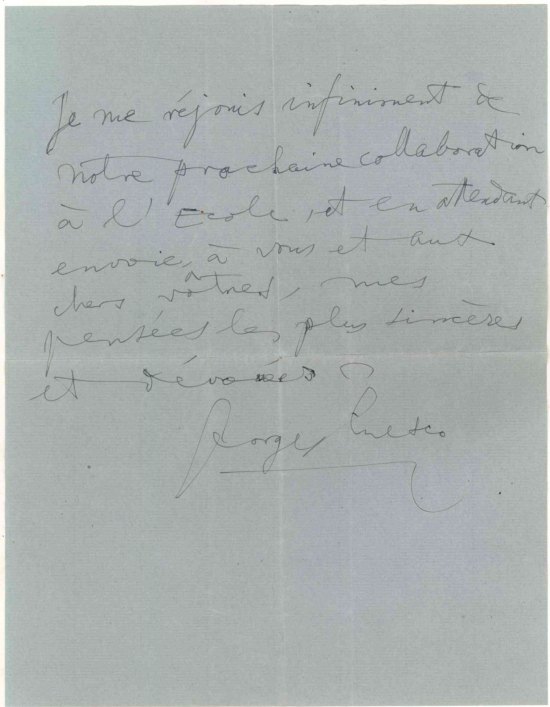 Je me réjouis infiniment de
notre prochaine collaboration
à l'Ecole, et en attendant
envoie, à vous et aux
chers vôtres, mes
pensées les plus sincères
et dévouées
Georges Enesco